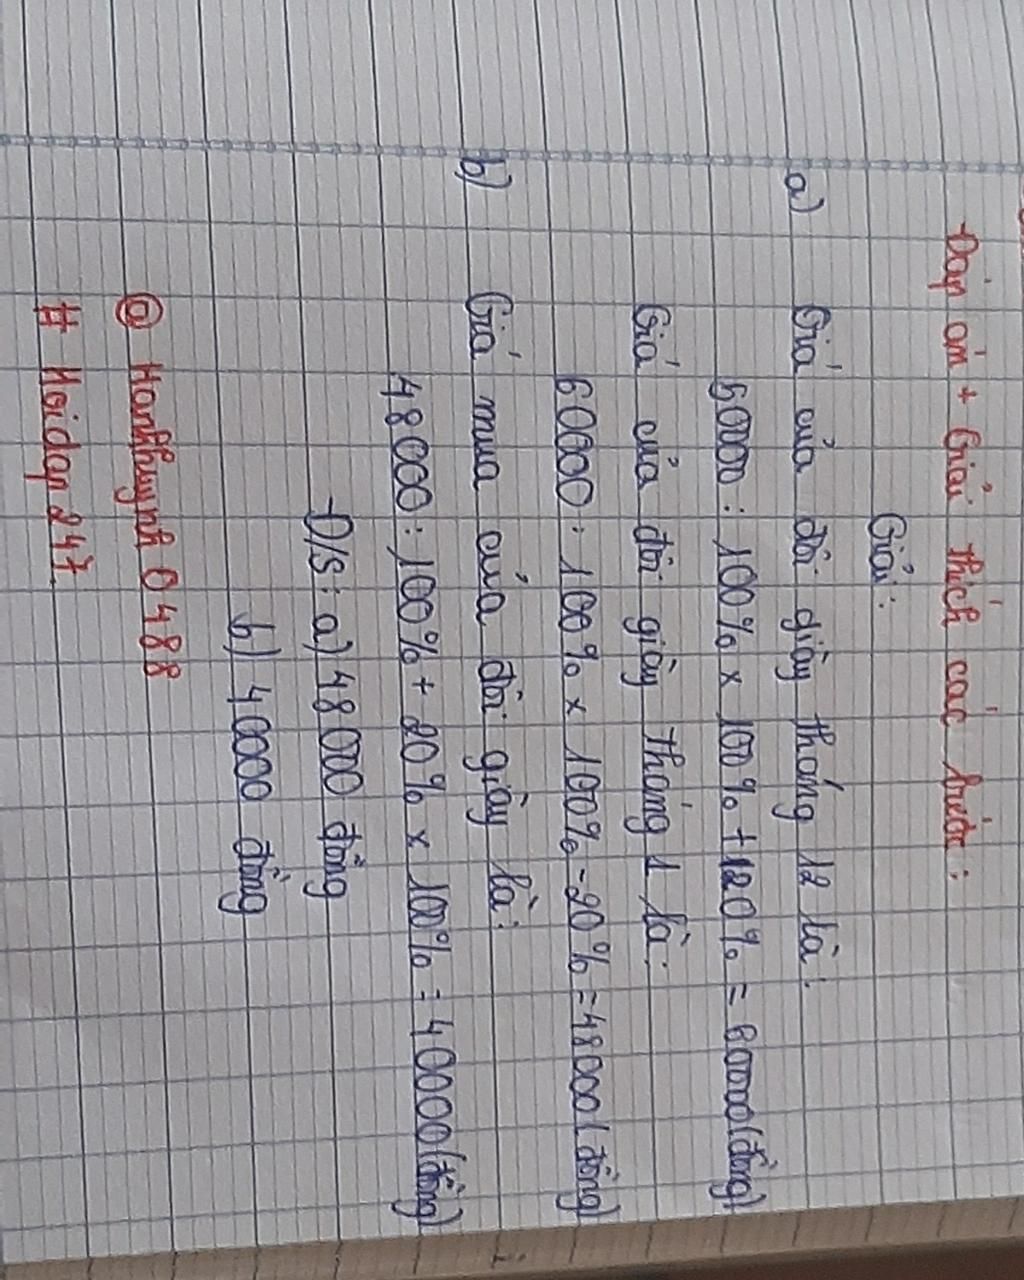 Đáp án + Giải thích các bước:
Giải:
a) Giá của đôi giày tháng 12 là:
50000 : 100% x 100% + 120% = 60000 (đồng)
Giá của đôi giày tháng 1 là:
60000 : 100% x 100% - 20% = 48000 (đồng)
b) Giá mua của đôi giày là:
48000 : 100% + 20% x 100% = 40000 (đồng)
Đ/S: a) 48000 đồng
b) 40000 đồng
@ Hanhhuynh0488
# Hoidap247